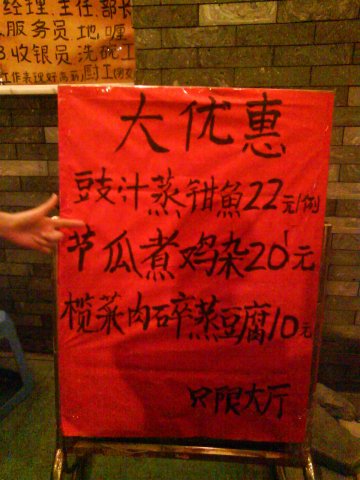 经理.主任.部长
服务员.地喱
收银员.洗碗工
大优惠
豉汁蒸钳魚22元/例
节瓜煮鸡杂20元
榄菜肉碎蒸豆腐10元
只限大厅